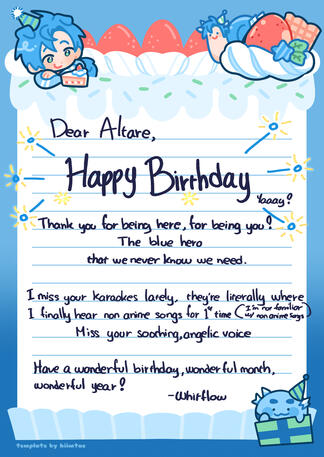 Dear Altare,
Happy Birthday
Yaaay?
Thank you for being here, for being you!
The blue hero
that we never know we need.
I miss your karaokes lately, they're literally where
I finally hear non anime songs for 1st time (I'm not familiar w/ non anime songs)
Miss your soothing, angelic voice
Have a wonderful birthday, wonderful month,
wonderful year!
-Whitflow
template by hiimtae